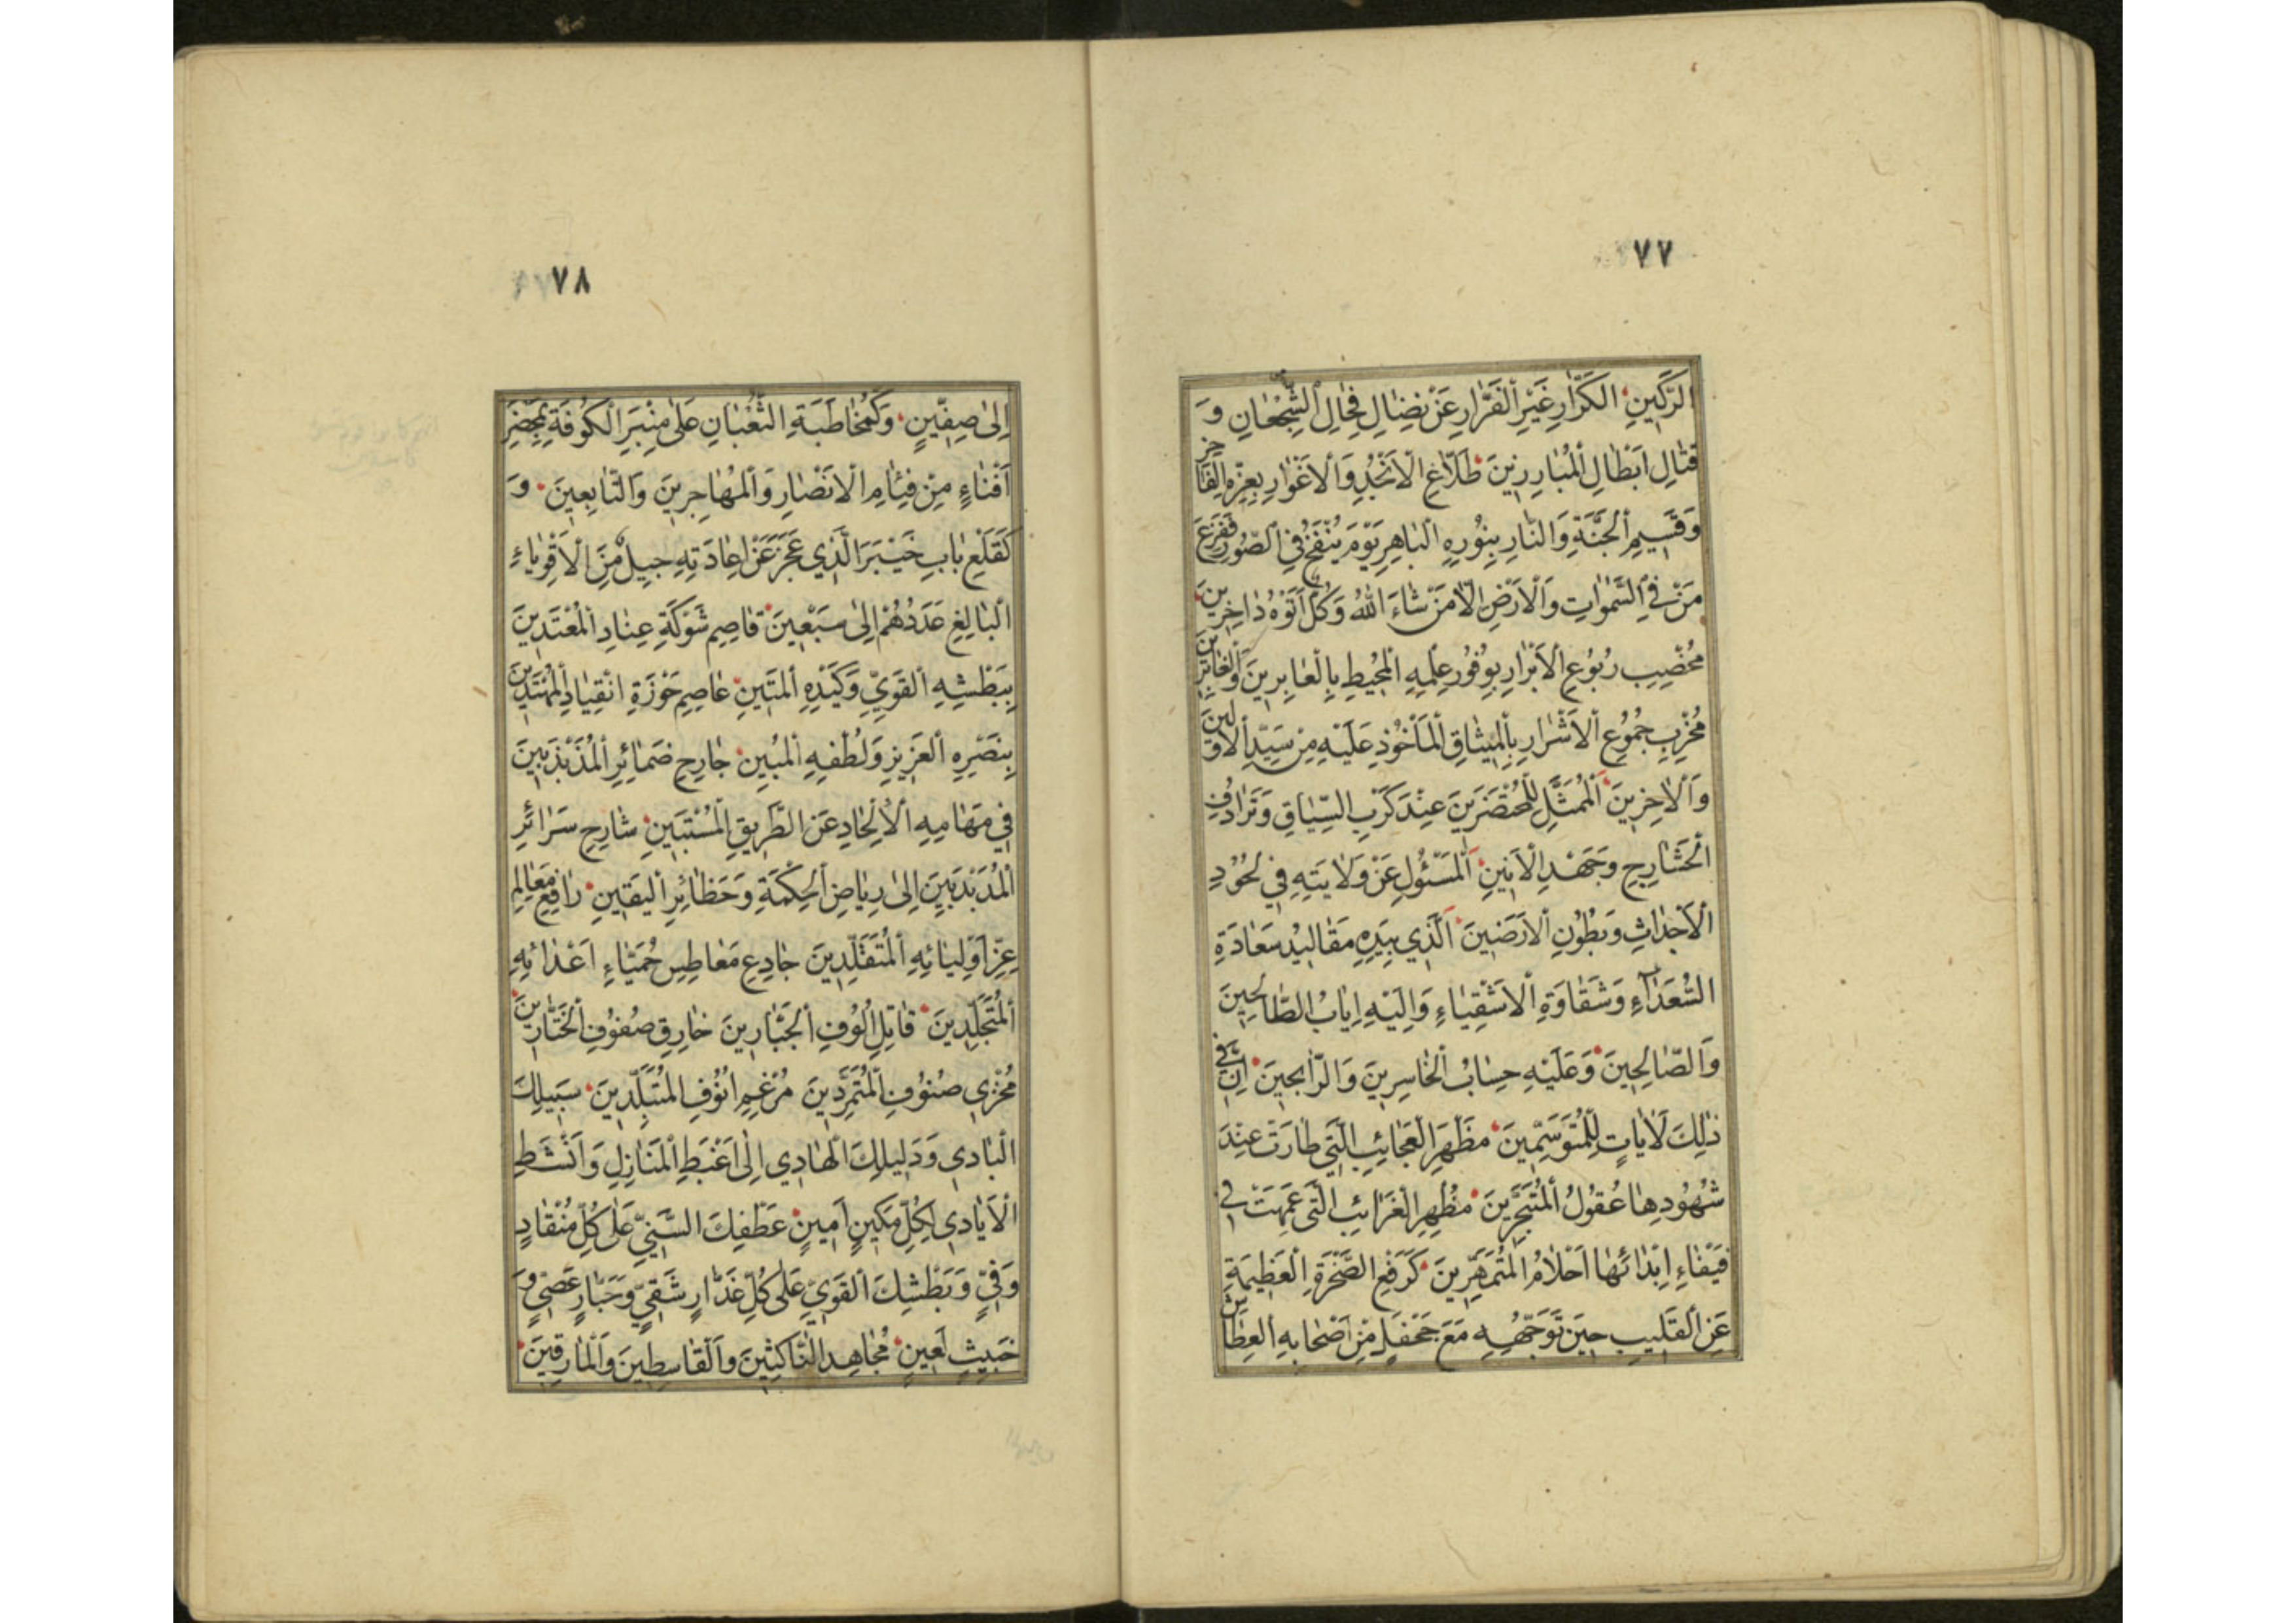 ٧٧
الرَّكِينِ الكَرَّارِ غَيْرِ الفَرَّارِ عَنْ نِضٰالِ فِحٰالِ الشُّجْعٰانِ وَ
قِتٰالِ اَبْطٰالِ الْمُبٰارِزِينَ طَلّاعِ الْاَنْجُدِ وَالْاَغْوٰارِ بِعِزِّهِ الفٰاخِرِ
وَقَسِيمِ الْجَنَّةِ وَالنّٰارِ بِنُورِهِ الْبٰاهِرِ يَوْمَ يُنْفَخُ فِي الصُّورِ فَفَزِعَ
مَنْ فِي السَّمٰوٰاتِ وَالْاَرْضِ اِلّٰا مَنْ شٰاءَ اللّٰهُ وَكُلٌّ اَتَوْهُ دٰاخِرِينَ
مُخْصِبِ رُبُوعِ الْاَبْرٰارِ بِوُفُورِ عِلْمِهِ الْمُحِيطِ بِالْعٰابِرِينَ وَالْغٰابِرِينَ
مُخْرِبِ جُمُوعِ الْاَشْرٰارِ بِالْمِيثٰاقِ الْمَأْخُوذِ عَلَيْهِ مِنْ سَيِّدِ الْاَوَّلِينَ
وَالْاٰخِرِينَ الْمُمَثَّلِ لِلْمُحْتَضَرِينَ عِنْدَ كَرْبِ السِّيٰاقِ وَتَرٰادُفِ
الْحَشٰارِجِ وَجَهْدِ الْاَنِينِ الْمَسْئُولِ عَنْ وَلٰايَتِهِ فِي لُحُودِ
الْاَجْدٰاثِ وَبُطُونِ الْاَرَضِينَ الَّذِي بِيَدِهِ مَقٰالِيدُ سَعٰادَةِ
السُّعَدٰاءِ وَشَقٰاوَةِ الْاَشْقِيٰاءِ وَاِلَيْهِ اِيٰابُ الطّٰالِحِينَ
وَالصّٰالِحِينَ وَعَلَيْهِ حِسٰابُ الْخٰاسِرِينَ وَالرّٰابِحِينَ اِنَّ فِي
ذٰلِكَ لَاٰيٰاتٍ لِلْمُتَوَسِّمِينَ مَظْهَرِ الْعَجٰائِبِ الَّتِي طٰارَتْ عِنْدَ
شُهُودِهٰا عُقُولُ الْمُتَبَحِّرِينَ مُظْهِرِ الْغَرٰائِبِ الَّتِي عَمِهَتْ فِي
فَيْفٰاءِ اِبْدٰائِهٰا اَحْلٰامُ الْمُتَمَهِّرِينَ كَرَفْعِ الصَّخْرَةِ الْعَظِيمَةِ
عَنِ الْقَلِيبِ حِينَ تَوَجُّهِهِ مَعَ جَحْفَلٍ مِنْ اَصْحٰابِهِ الْعِطٰاشِ
٧٨
اِلىٰ صِفِّينٍ وَكَمُخٰاطَبَةِ الثُّعْبٰانِ عَلىٰ مِنْبَرِ الْكُوفَةِ بِمَحْضَرِ
اَفْنٰاءٍ مِنْ فِئٰامِ الْاَنْصٰارِ وَالْمُهٰاجِرِينَ وَالتّٰابِعِينَ وَ
كَقَلْعِ بٰابِ خَيْبَرَ الَّذِي عَجَزَ عَنْ اِعٰادَتِهِ جِيلٌ مِنَ الْاَقْوِيٰاءِ
الْبٰالِغِ عَدَدُهُمْ اِلىٰ سَبْعِينَ قٰاصِمِ شَوْكَةِ عِنٰادِ الْمُعْتَدِينَ
بِبَطْشِهِ الْقَوِيِّ وَكَيْدِهِ الْمَتِينِ عٰاصِمِ حَوْزَةِ انْقِيٰادِ الْمُهْتَدِينَ
بِنَصْرِهِ الْعَزِيزِ وَلُطْفِهِ الْمُبِينِ جٰارِحِ ضَمٰائِرِ الْمُذَبْذَبِينَ
فِي مَهٰامِهِ الْاِلْحٰادِ عَنِ الطَّرِيقِ الْمُسْتَبِينِ شٰارِحِ سَرٰائِرِ
الْمُدَبْدَبِينَ اِلىٰ رِيٰاضِ الْحِكْمَةِ وَحَظٰائِرِ الْيَقِينِ رٰافِعِ مَعٰالِمِ
عِزِّ اَوْلِيٰائِهِ الْمُتَقَلِّدِينَ جٰادِعِ مَعٰاطِسِ حُمَيّٰاءِ اَعْدٰائِهِ
الْمُتَجَلِّدِينَ قٰاتِلِ اُلُوفِ الْجَبّٰارِينَ خٰارِقِ صُفُوفِ الْخَتّٰارِينَ
مُخْزِي صُنُوفِ الْمُتَمَرِّدِينَ مُرْغِمِ اُنُوفِ الْمُتَبَلِّدِينَ سَبِيلِكَ
الْبٰادِي وَدَلِيلِكَ الْهٰادِي اِلىٰ اَغْبَطِ الْمَنٰازِلِ وَاَنْشَطِ
الْاَيٰادِي لِكُلِّ مَكِينٍ اَمِينٍ عَطْفِكَ السَّنِيِّ عَلىٰ كُلِّ مُنْقٰادٍ
وَفِيٍّ وَبَطْشِكَ الْقَوِيِّ عَلىٰ كُلِّ غَدّٰارٍ شَقِيٍّ وَجَبّٰارٍ عَصِيٍّ وَ
خَبِيثٍ لَعِينٍ مُجٰاهِدِ النّٰاكِثِينَ وَالْقٰاسِطِينَ وَالْمٰارِقِينَ